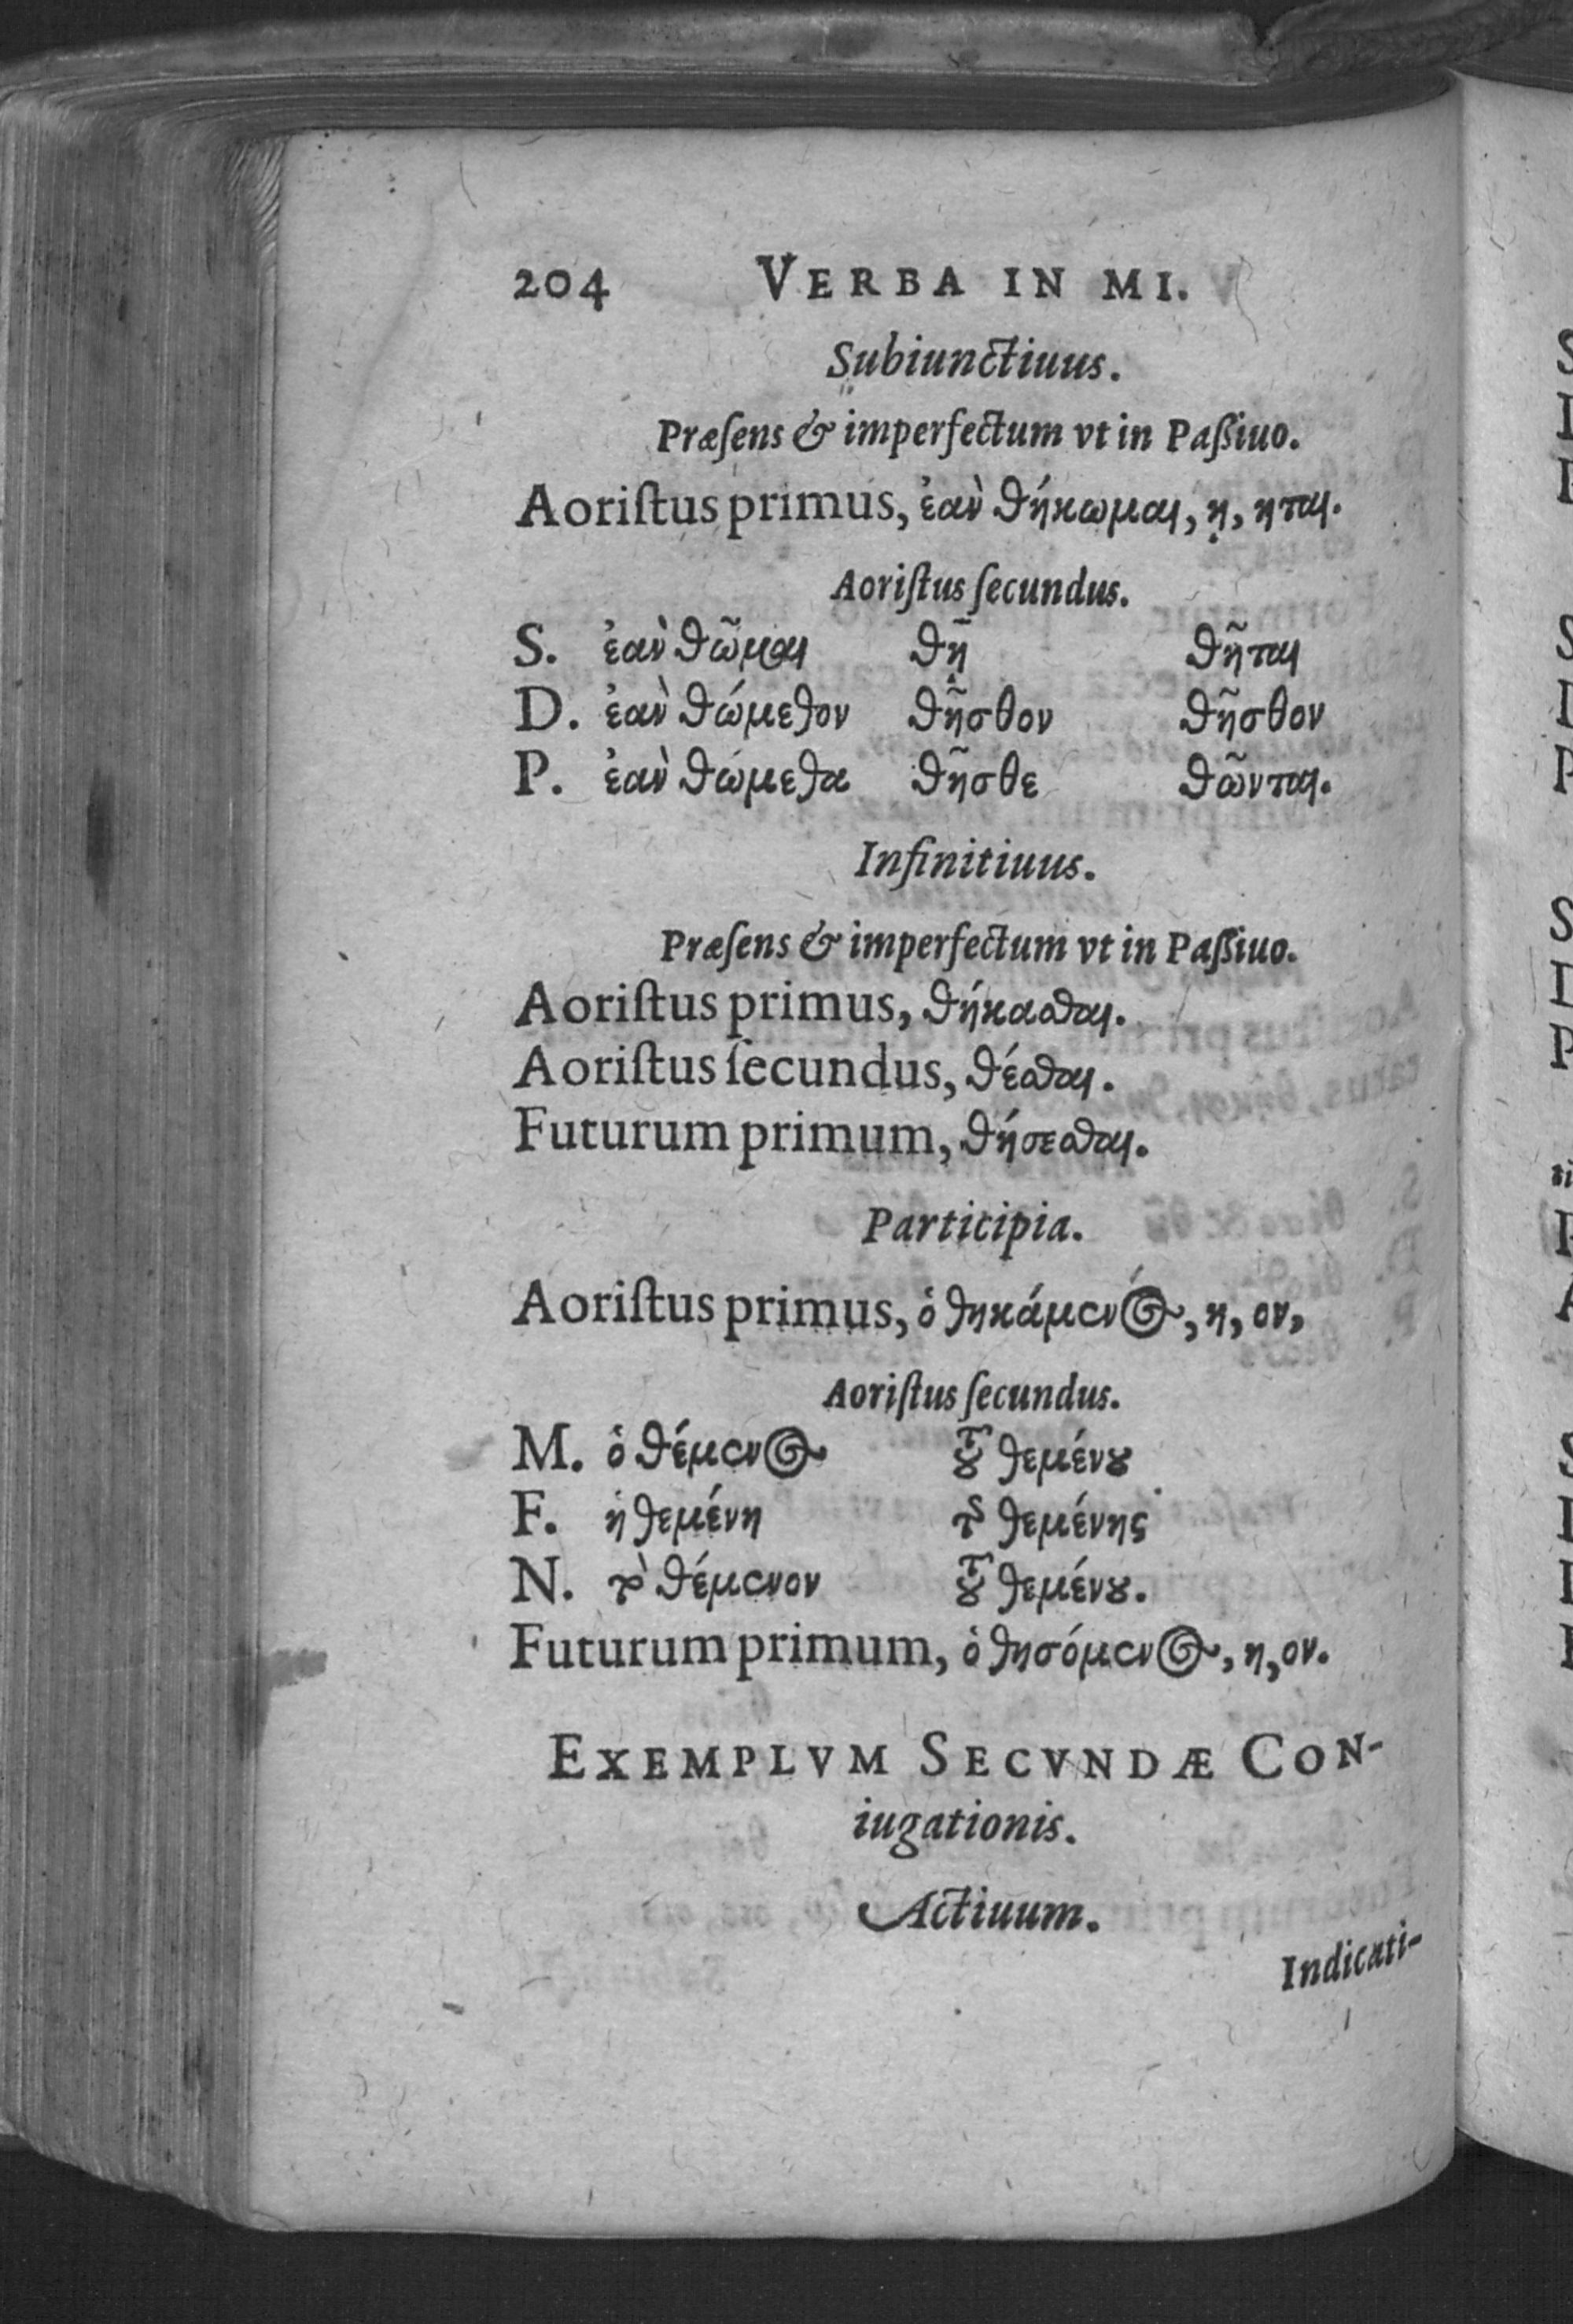 204 VERBA IN MI.
Subiunctiuus.
Præſens & imperfectum vt in Paſſiuo.
Aoriſtus primus, ἐὰν θήκωμαι, ῃ, ηται.
Aoriſtus ſecundus.
S. ἐὰν θῶμαι θῇ θῆται
D. ἐὰν θώμεθον θῆσθον θῆσθον
P. ἐὰν θώμεθα θῆσθε θῶνται.
Infinitiuus.
Præſens & imperfectum vt in Paſſiuo.
Aoriſtus primus, θήκασθαι.
Aoriſtus ſecundus, θέσθαι.
Futurum primum, θήσεσθαι.
Participia.
Aoriſtus primus, ὁ θηκάμενος, η, ον,
Aoriſtus ſecundus.
M. ὁ θέμενος τοῦ θεμένου
F. ἡ θεμένη τῆς θεμένης
N. τὸ θέμενον τοῦ θεμένου.
Futurum primum, ὁ θησόμενος, η, ον.
EXEMPLVM SECVNDÆ CON-
iugationis.
Actiuum.
Indicati-